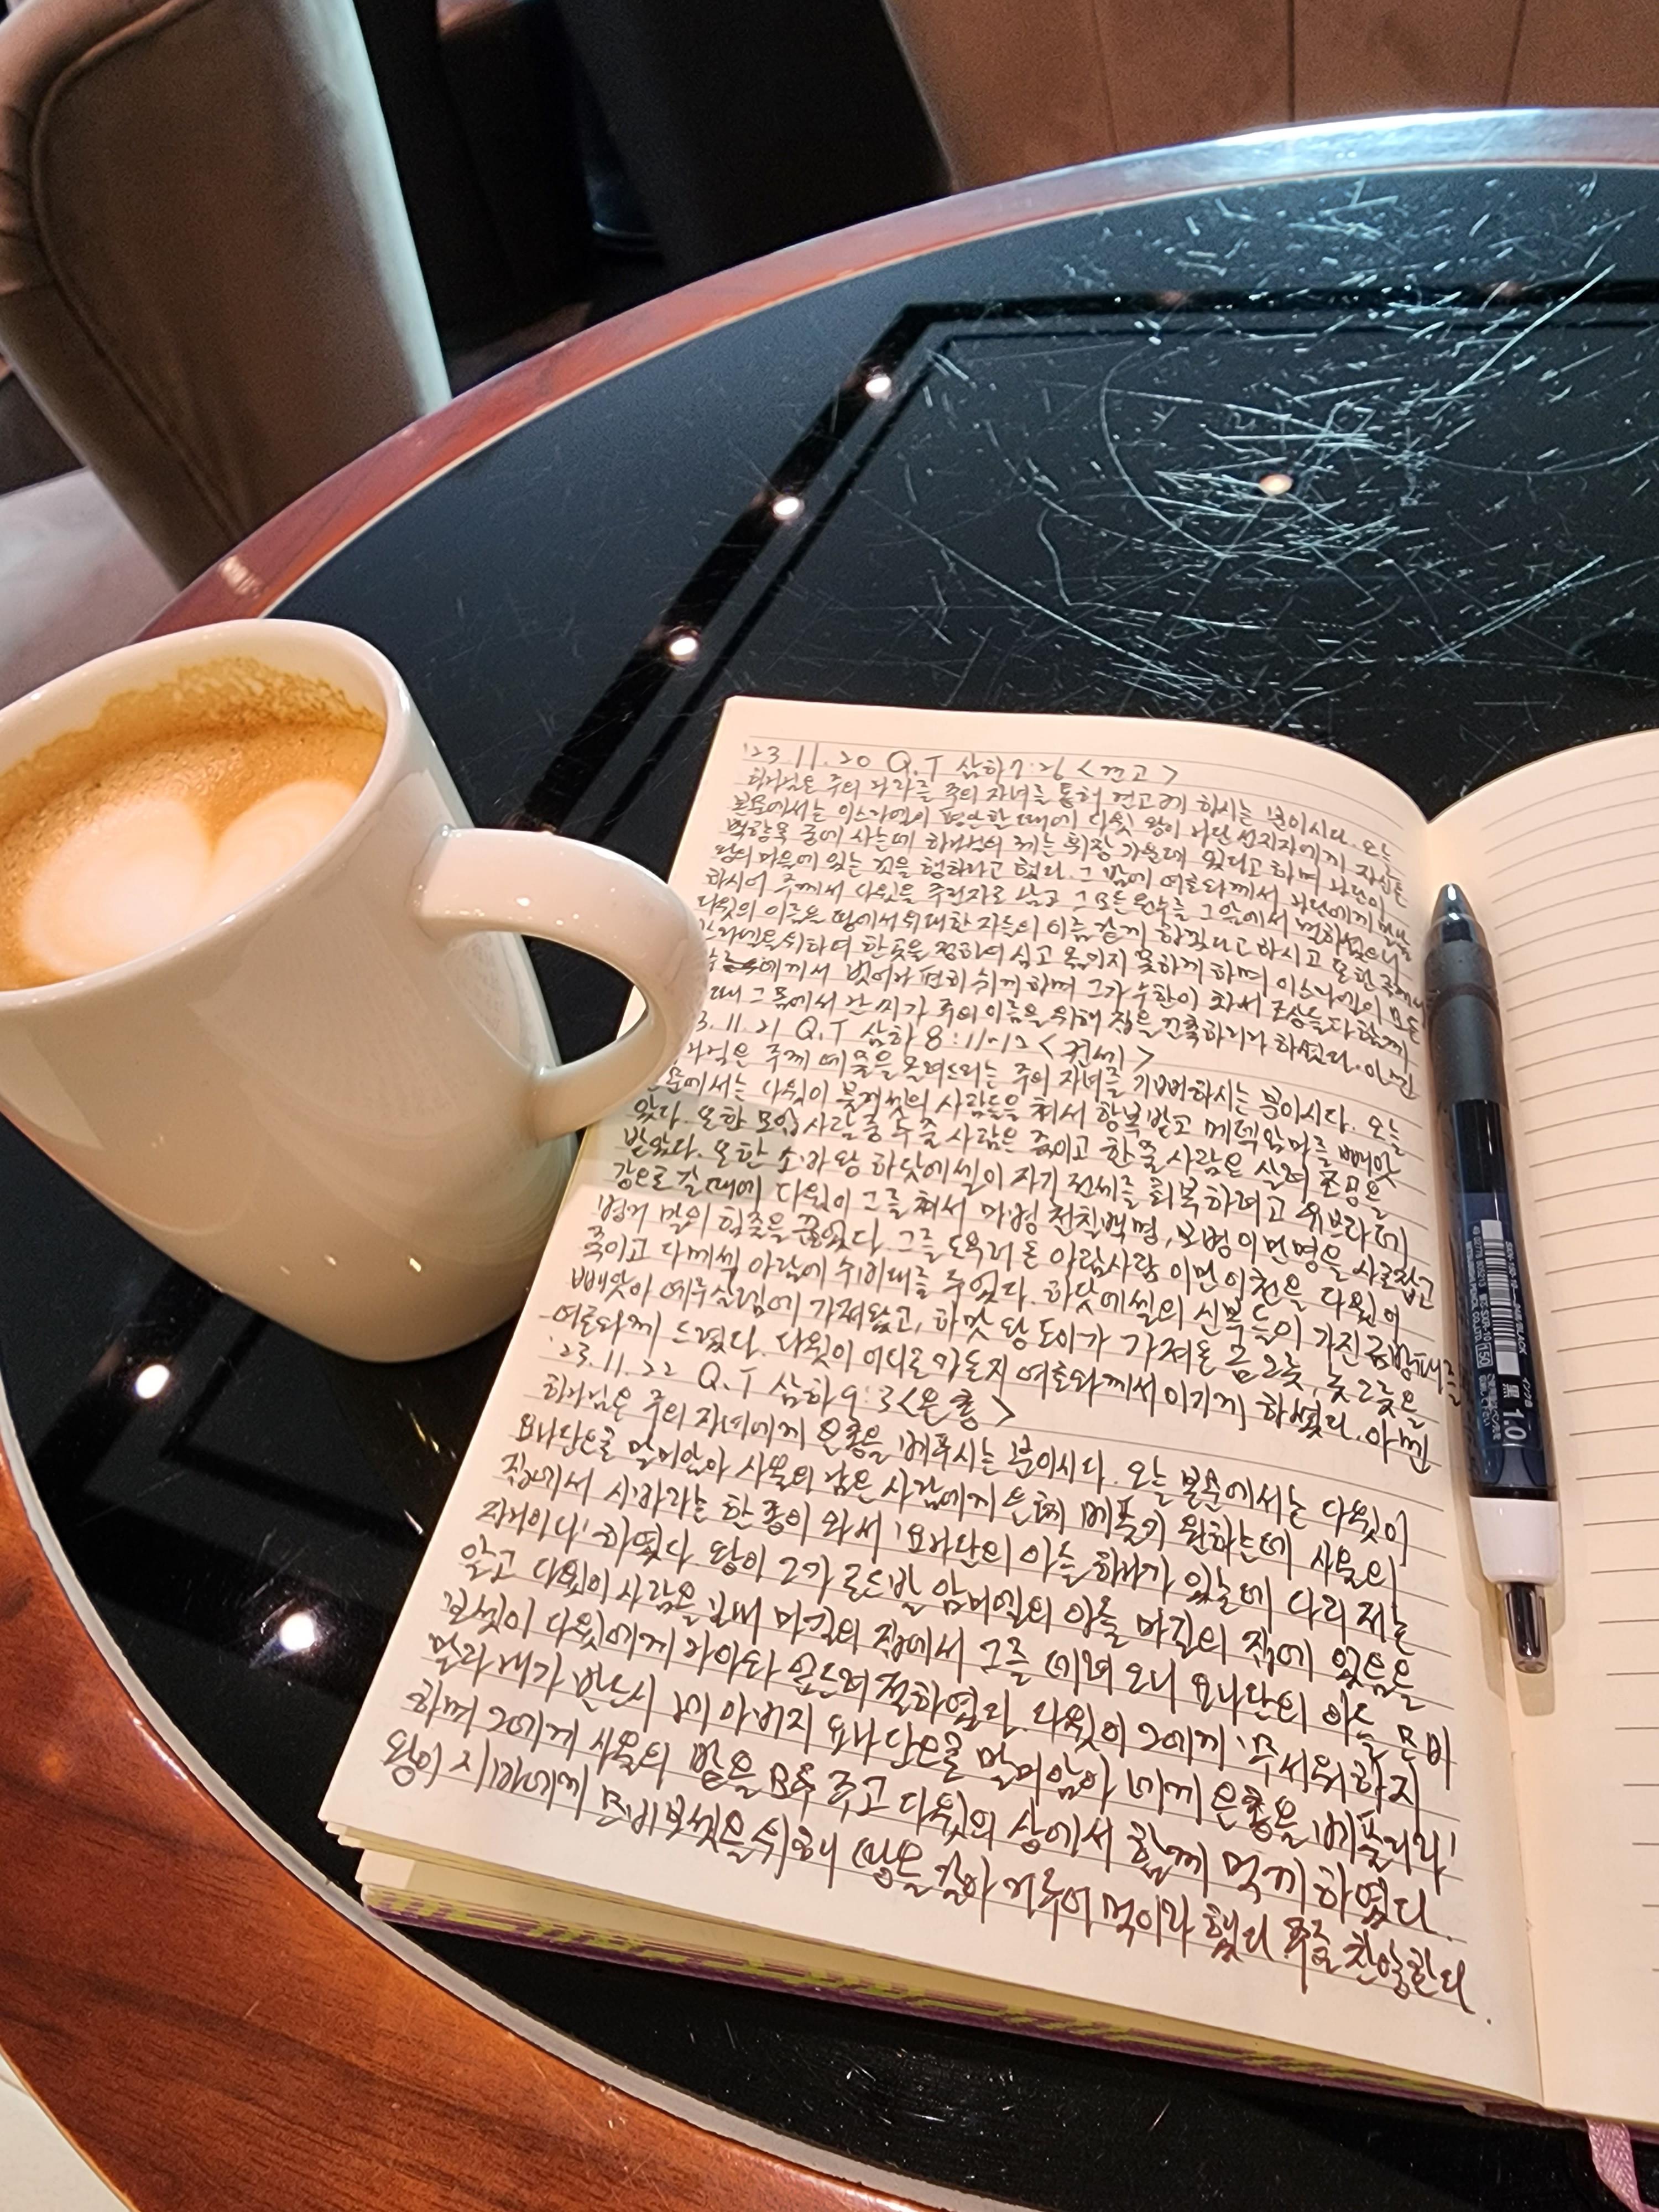 '23.11.20 Q.T 삼하7:26 <견고>
하나님은 주의 나라를 주의 자녀를 통해 견고케 하시는 분이시다. 오늘
본문에서는 이스라엘이 평안할 때에 다윗 왕이 나단 선지자에게 자신은
백향목 궁에 사는데 하나님의 궤는 휘장 가운데 있다고 하며 나단이
왕의 마음에 있는 것을 행하라고 했다. 그 밤에 여호와께서 나단에게 말씀
하시어 주께서 다윗을 주권자로 삼고 그 모든 원수를 그 앞에서 멸하셨으니
다윗의 이름을 땅에서 위대한 자들의 이름 같게 하겠다고 하시고 또한 주께서
스라엘을 위하여 한 곳을 정하여 심고 옮기지 못하게 하며 이스라엘이 모든
에게서 벗어나 편히 쉬게 하며 그가 수한이 차서 조상들과 함께
때 그 몸에서 난 씨가 주의 이름을 위해 집을 건축하리라 하셨다. 아멘
3.11.21 Q.T 삼하 8:11-12 <전쟁>
나님은 주께 예물을 올려드리는 주의 자녀를 기뻐하시는 분이시다. 오늘
문에서는 다윗이 블레셋의 사람들을 쳐서 항복받고 메덱암마를 빼앗
았다. 또한 모압 사람 중 두 줄 사람은 죽이고 한 줄 사람은 살려 조공을
받았다. 또한 소바 왕 하닷에셀이 자기 권세를 회복하려고 유브라데
강으로 갈 때에 다윗이 그를 쳐서 마병 천칠백명, 보병 이만명을 사로잡고
병거 말의 힘줄을 끊었다. 그를 도우러 온 아람사람 이만 이천을 다윗이
죽이고 다메섹 아람에 수비대를 두었다. 하닷에셀의 신복들이 가진 금방패를
빼앗아 예루살렘에 가져왔고, 하맛 왕 도이가 가져온 금그릇, 놋그릇을
여호와께 드렸다. 다윗이 어디로 가든지 여호와께서 이기게 하셨다. 아멘
'23.11.22 Q.T 삼하9:3 <은총>
하나님은 주의 자녀에게 은총을 베푸시는 분이시다. 오늘 본문에서는 다윗이
요나단으로 말미암아 사울의 남은 사람에게 은혜 베풀기 원하는데 사울의
집에서 시바라는 한 종이 와서 '요나단의 아들 하나가 있는데 다리 저는
자이니다' 하였다 왕이 그가 로드발 암미엘의 아들 마길의 집에 있음을
알고 다윗이 사람을 보내 마길의 집에서 그를 데려 오니 요나단의 아들 므비
보셋이 다윗에게 나아와 엎드려 절하였다. 다윗이 그에게 '무서워하지
말라 내가 반드시 네 아버지 요나단으로 말미암아 네게 은총을 베풀리라'
하며 그에게 사울의 밭을 다 주고 다윗의 상에서 함께 먹게 하였다.
왕이 시바에게 므비보셋을 위해 땅을 갈아 거두어 먹이라 했다 주를 찬양한다.
1.0